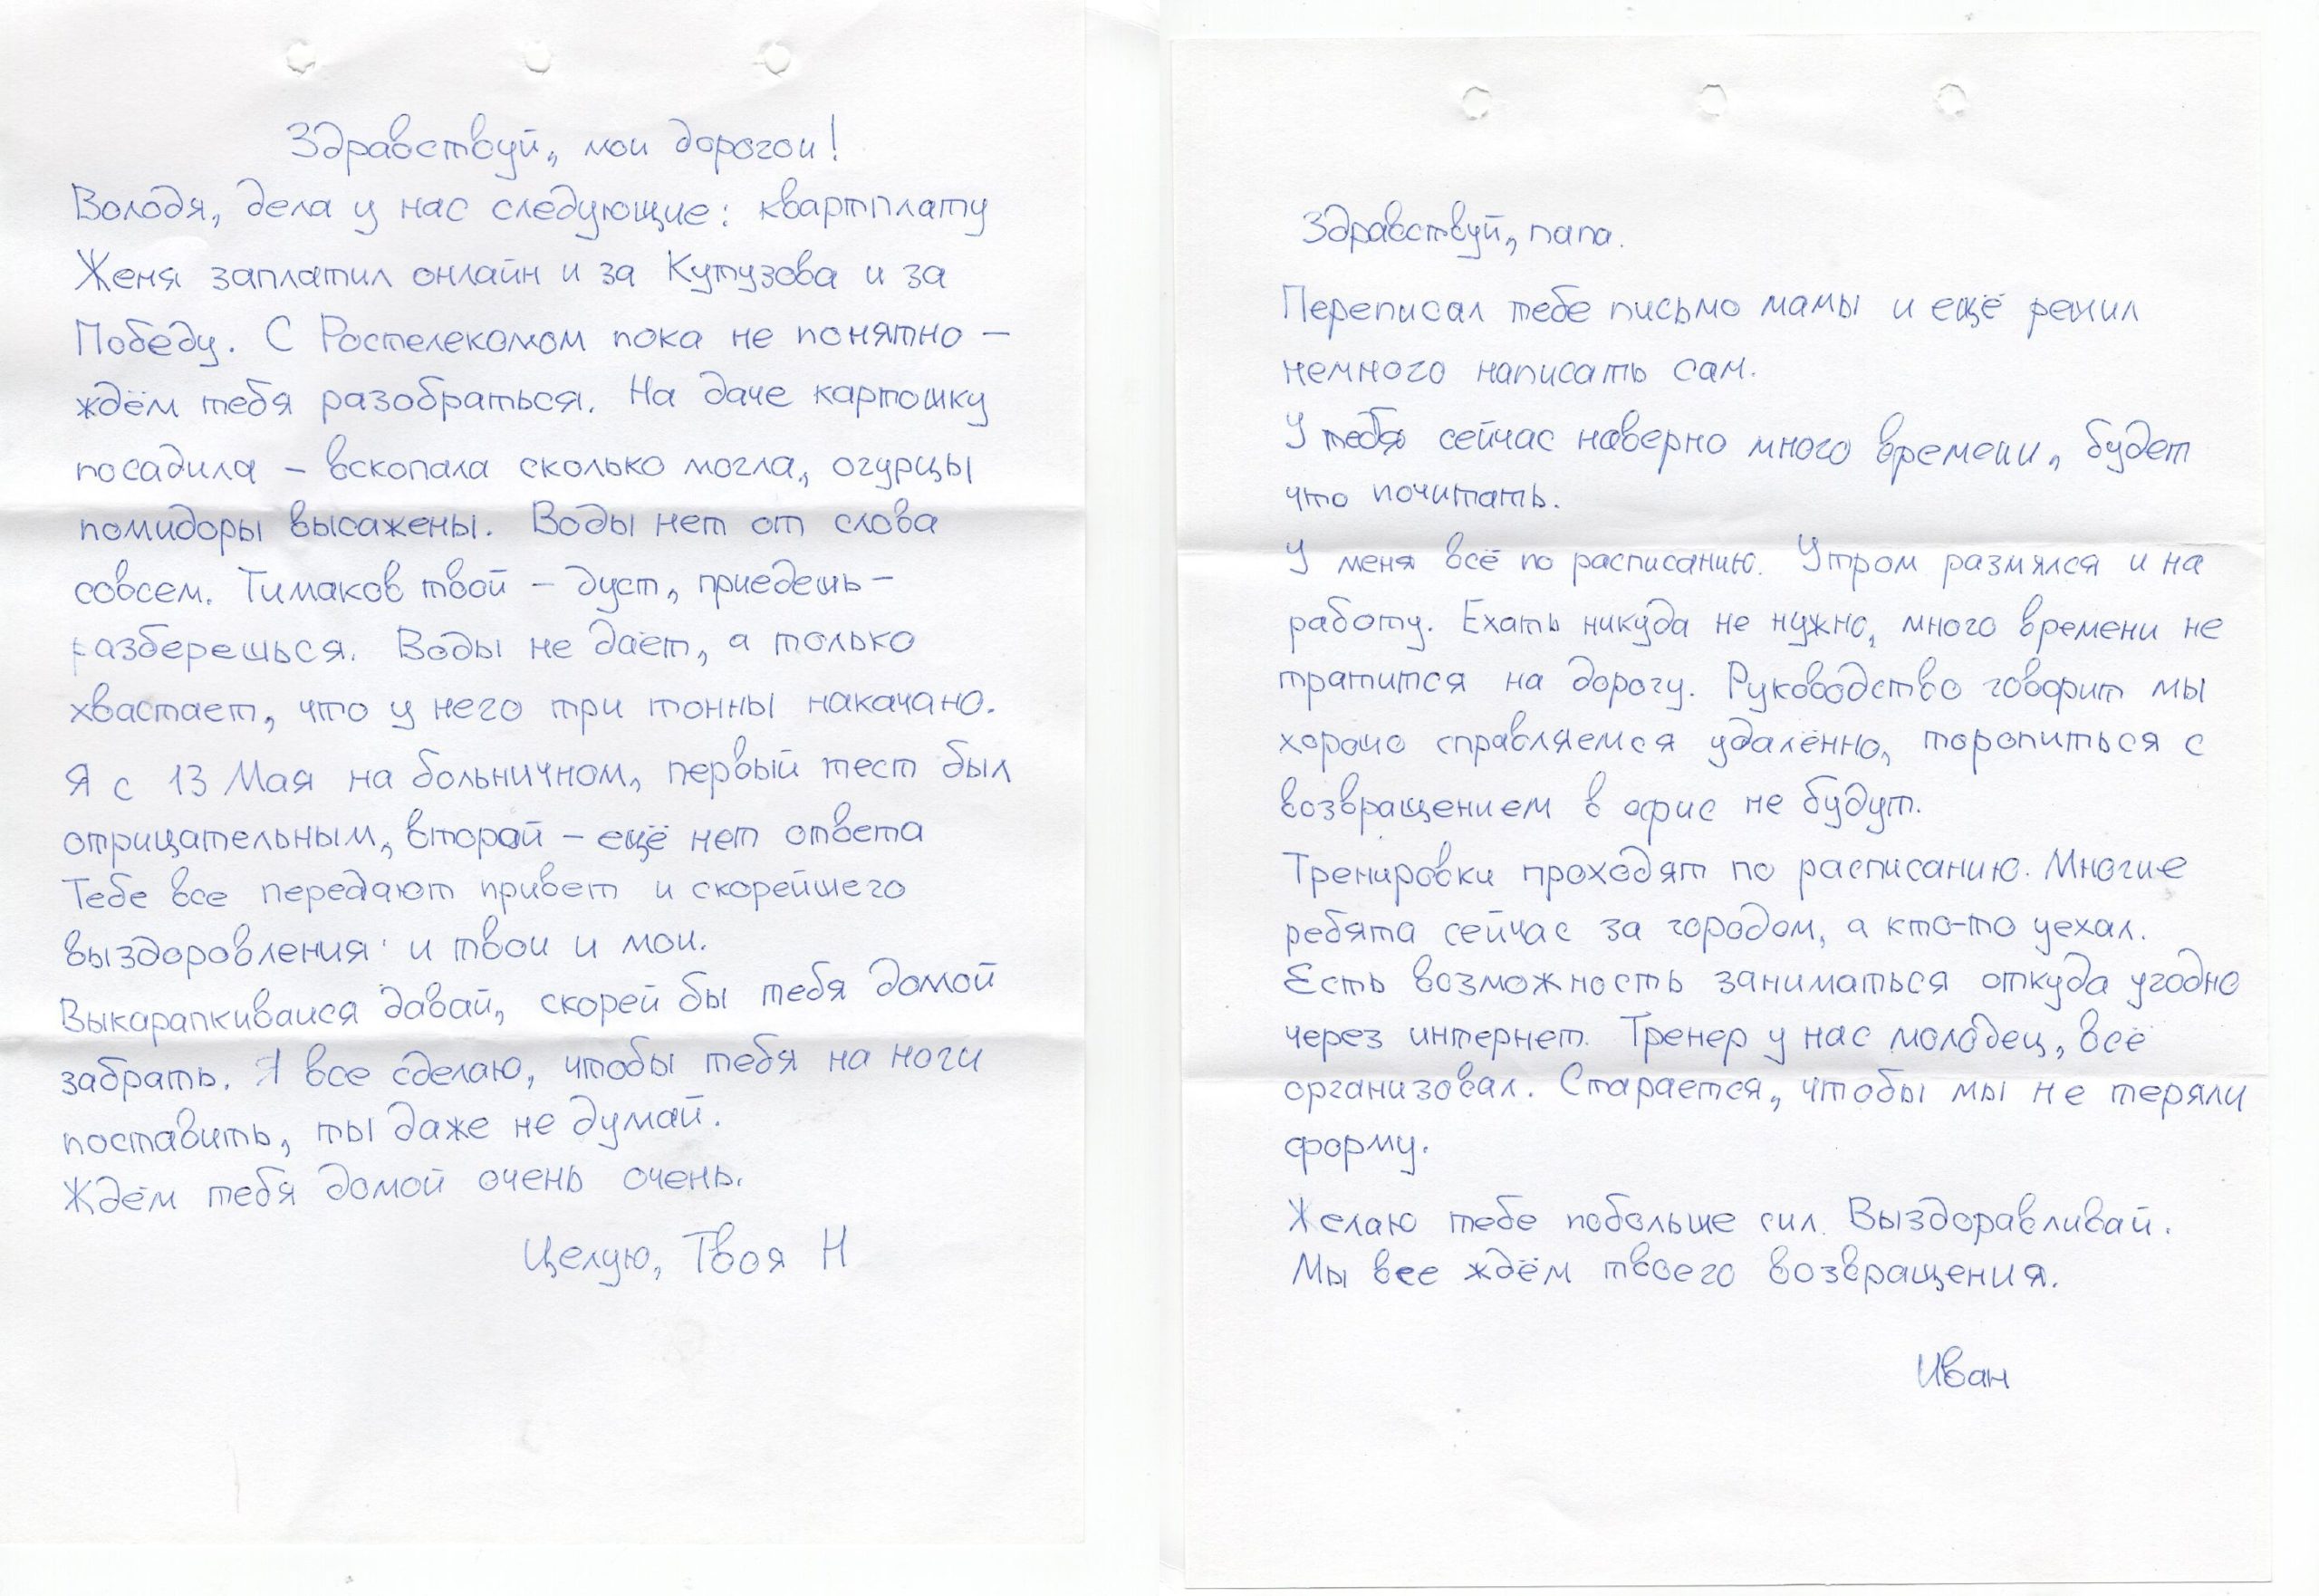 Здравствуй, мои дорогои!
Володя, дела у нас следующие: квартплату
Женя заплатил онлайн и за Кутузова и за
Победу. С Ростелекомом пока не понятно –
ждём тебя разобраться. На даче картошку
посадила – вскопала сколько могла, огурцы
помидоры высажены. Воды нет от слова
совсем. Тимаков твой – дуст, приедешь –
разберешься. Воды не даёт, а только
хвастает, что у него три тонны накачано.
Я с 13 Мая на больничном, первый тест был
отрицательным, второй – ещё нет ответа
Тебе все передают привет и скорейшего
выздоровления и твои и мои.
Выкарапкиваися давай, скорей бы тебя домой
забрать. Я все сделаю, чтобы тебя на ноги
поставить, ты даже не думай.
Ждём тебя домой очень очень.
Целую, Твоя Н
Здравствуй, папа.
Переписал тебе письмо мамы и ещё решил
немного написать сам.
У тебя сейчас наверно много времени, будет
что почитать.
У меня всё по расписанию. Утром размялся и на
работу. Ехать никуда не нужно, много времени не
тратится на дорогу. Руководство говорит мы
хорошо справляемся удалённо, торопиться с
возвращением в офис не будут.
Тренировки проходят по расписанию. Многие
ребята сейчас за городом, а кто-то уехал.
Есть возможность заниматься откуда угодно
через интернет. Тренер у нас молодец, всё
организовал. Старается, чтобы мы не теряли
форму.
Желаю тебе побольше сил. Выздоравливай.
Мы все ждём твоего возвращения.
Иван